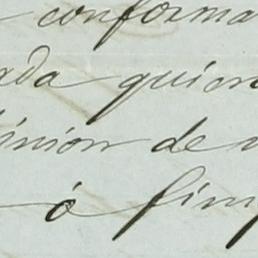 conforma
ada quier
inion de
ó fin